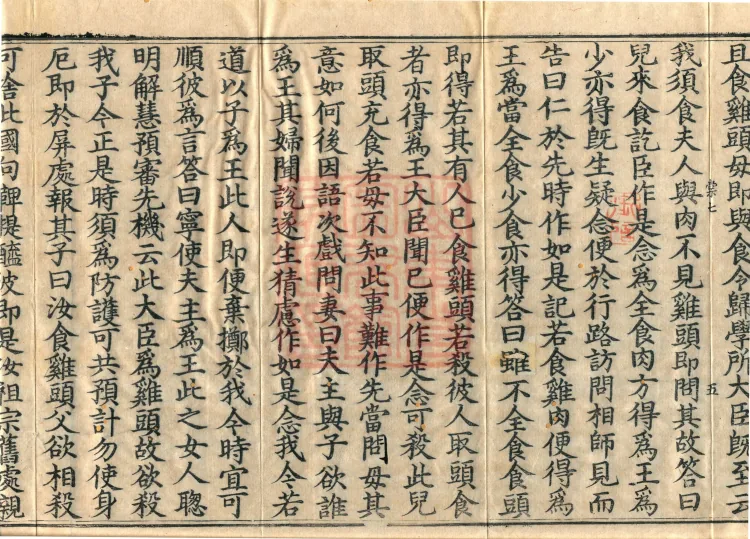 且食雞頭母即與食令歸學所大臣旣至云
棠七 五
我須食夫人與肉不見雞頭即問其故答曰
兒來食訖臣作是念爲全食肉方得爲王爲
少亦得旣生疑念便於行路訪問相師見而
告曰仁於先時作如是記若食雞肉便得爲
王爲當全食少食亦得答曰雖不全食食頭
即得若其有人已食雞頭若殺彼人取頭食
者亦得爲王大臣聞已便作是念可殺此兒
取頭充食若母不知此事難作先當問母其
意如何後因語次戲問妻曰夫主與子欲誰
爲王其婦聞說遂生猜慮作如是念我今若
道以子爲王此人即便棄擲於我今時宜可
順彼爲言答曰寧使夫主爲王此之女人聦
明解慧預審先機云此大臣爲雞頭故欲殺
我子今正是時須爲防護可共預計勿使身
厄即於屏處報其子曰汝食雞頭父欲相殺
可捨此國向鞞提醯彼即是汝祖宗舊處親